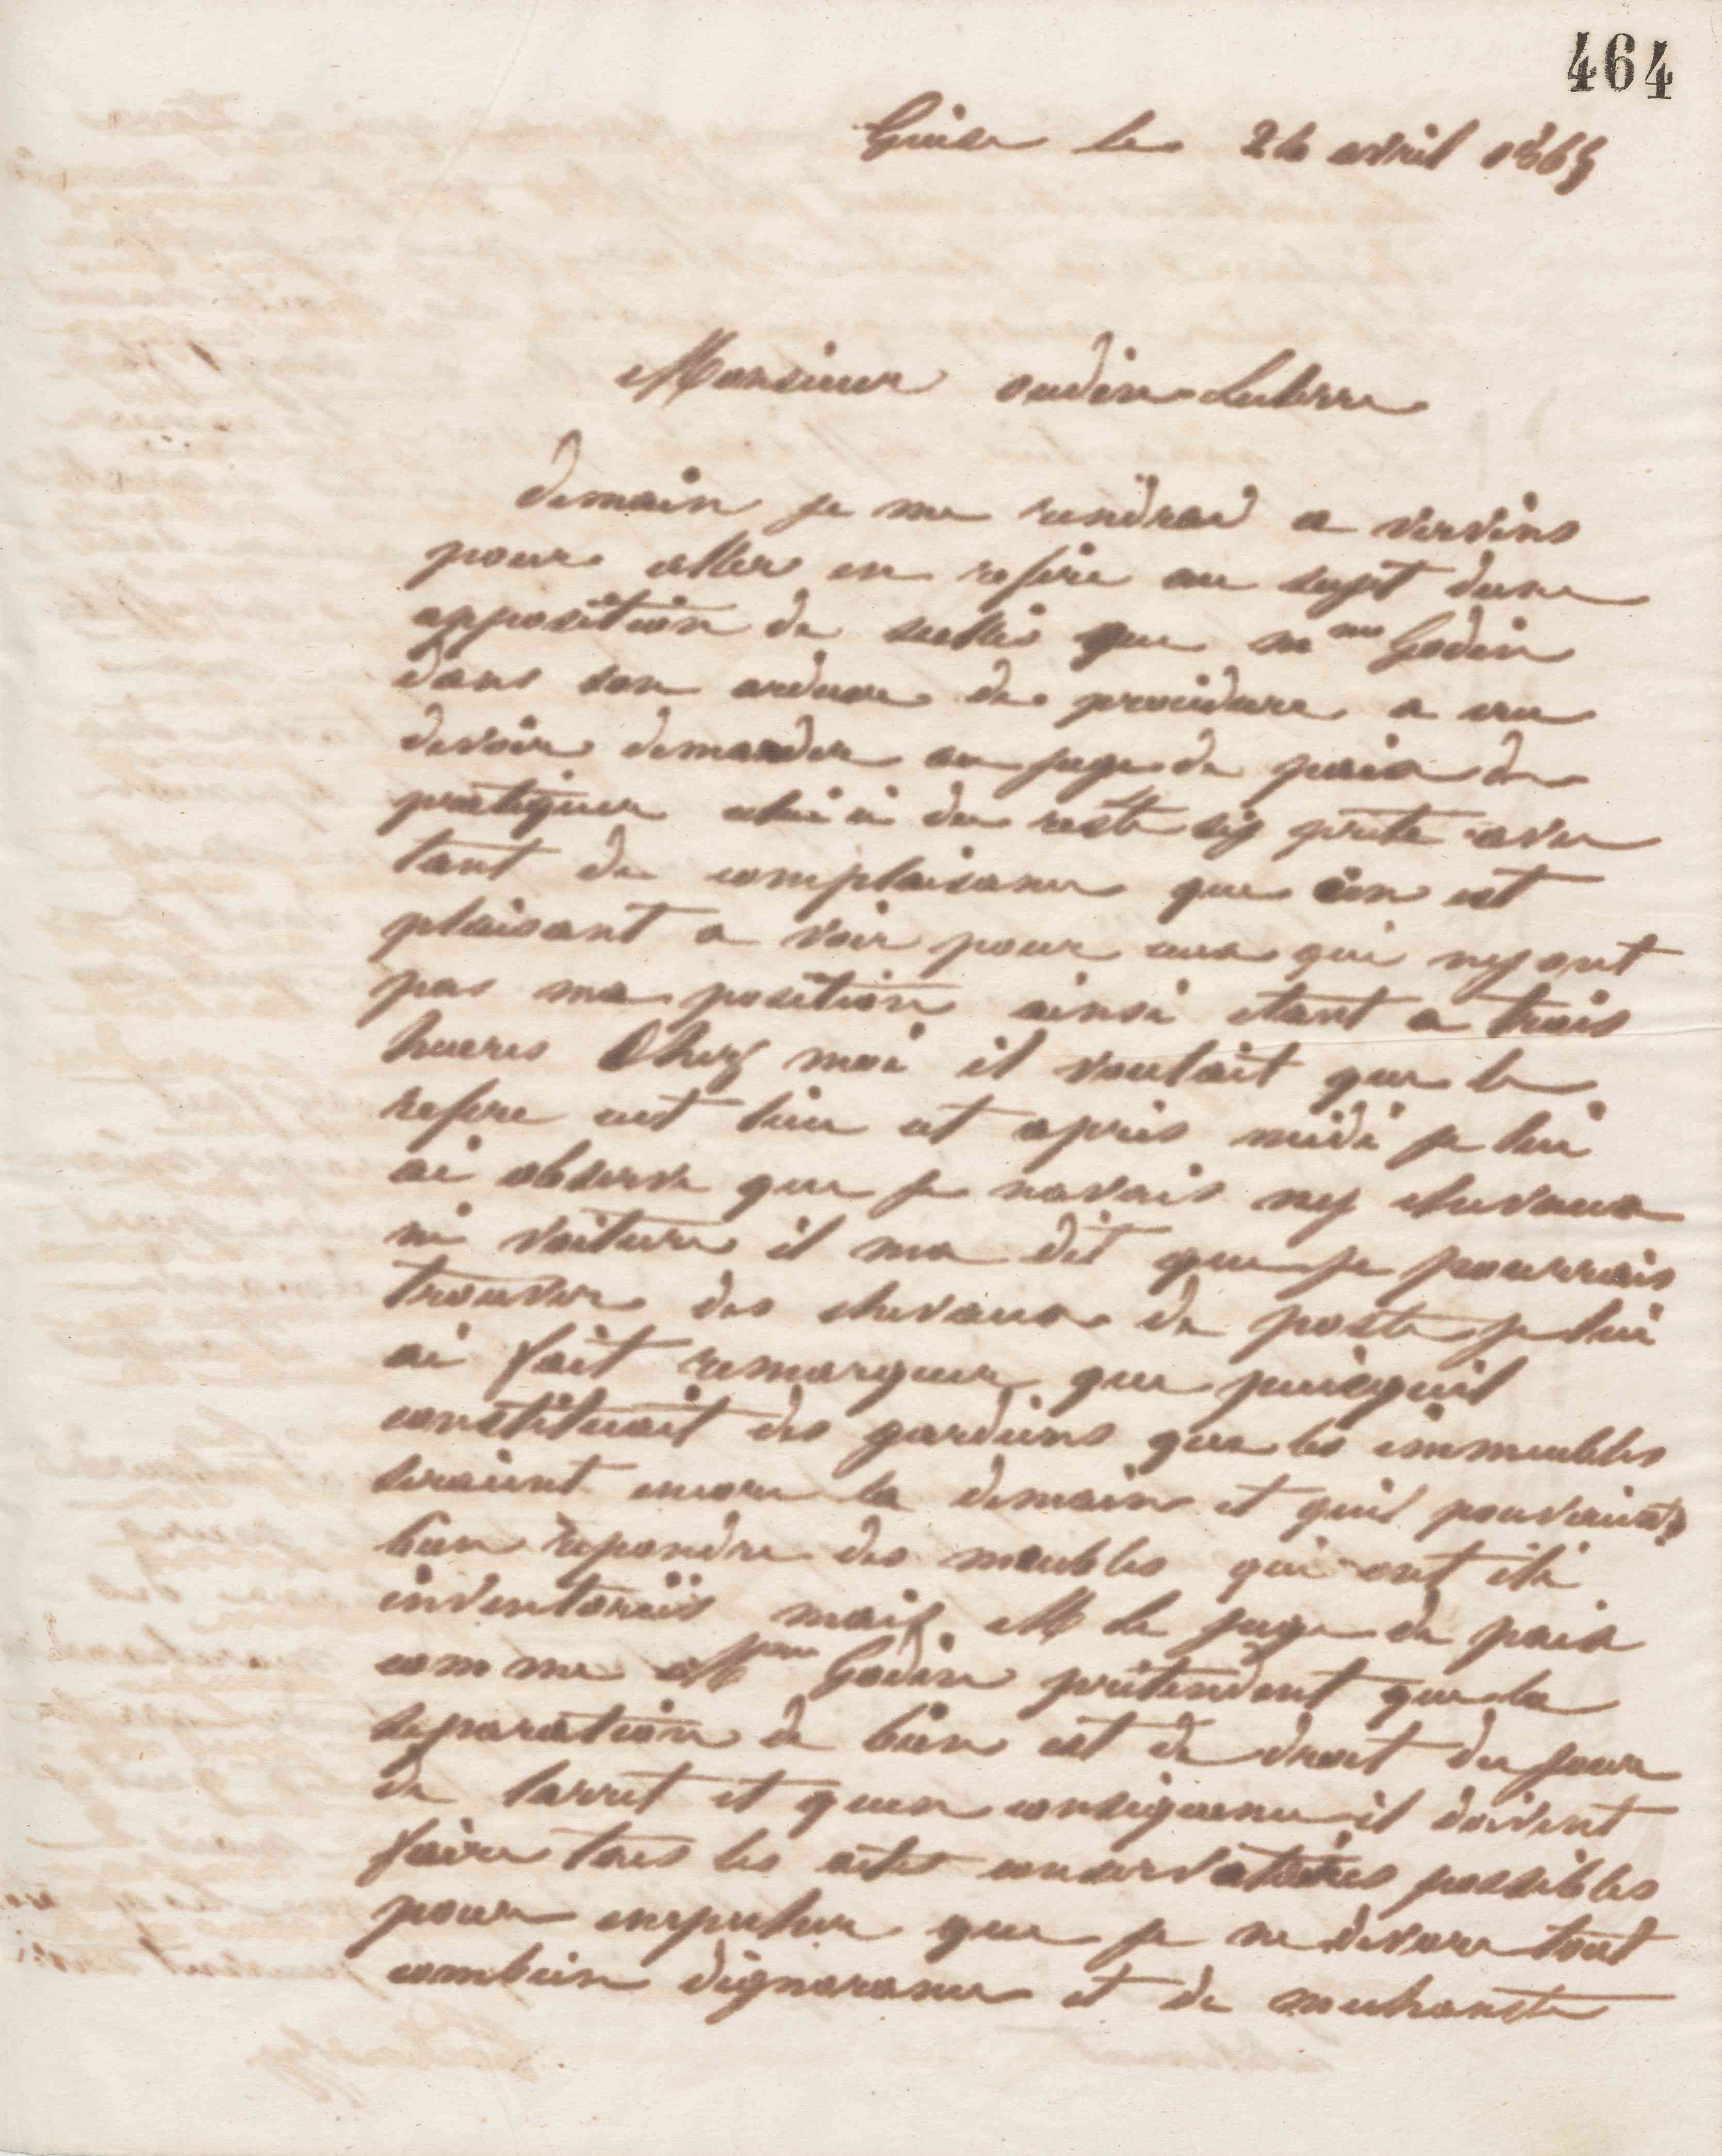 464
Guise le 24 avril 1865
Monsieur oudin-Leclerre
demain je me rendrai a vervins
pour aller en refere au sujet dune
apposition de scellés que mme Godin
dans son ardeur de procedure a cru
devoir demander au juge de paix de
pratiquer celui ci du reste sy prete avec
tant de complaisance que cen est
plaisant a voir pour ceux qui ny ont
pas ma position ainsi etant a trois
heures Chez moi il voulait que le
refere eut lieu cet apres midi je lui
ai observe que je navais ny chevaux
ni voiture il ma dit que je pourrais
trouver des chevaux de poste je lui
ai fait remarquer que puisquil
constituait des gardiens que les immeubles
seraient encore la demain et quil pouvaient
bien repondre des meubles qui ont été
inventoriés mais M le juge de paix
comme Mme Godin prétendent que la
separation de bien est de droit du jour
de larret et quen consequence il doivent
faire tous les actes conservatoires possibles
pour empecher que je ne devore tout
combien dignorance et de mechanste